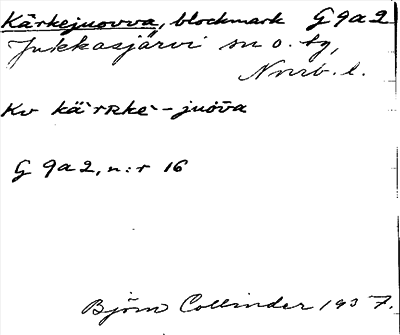 Kärkejuovva, blockmark G 9a2
Jukkasjärvi sn o. tg,
Norrb. l.
Kv kä`rʀke`-juōva
G 9a2, n:r 16
Björn Collinder 1937.